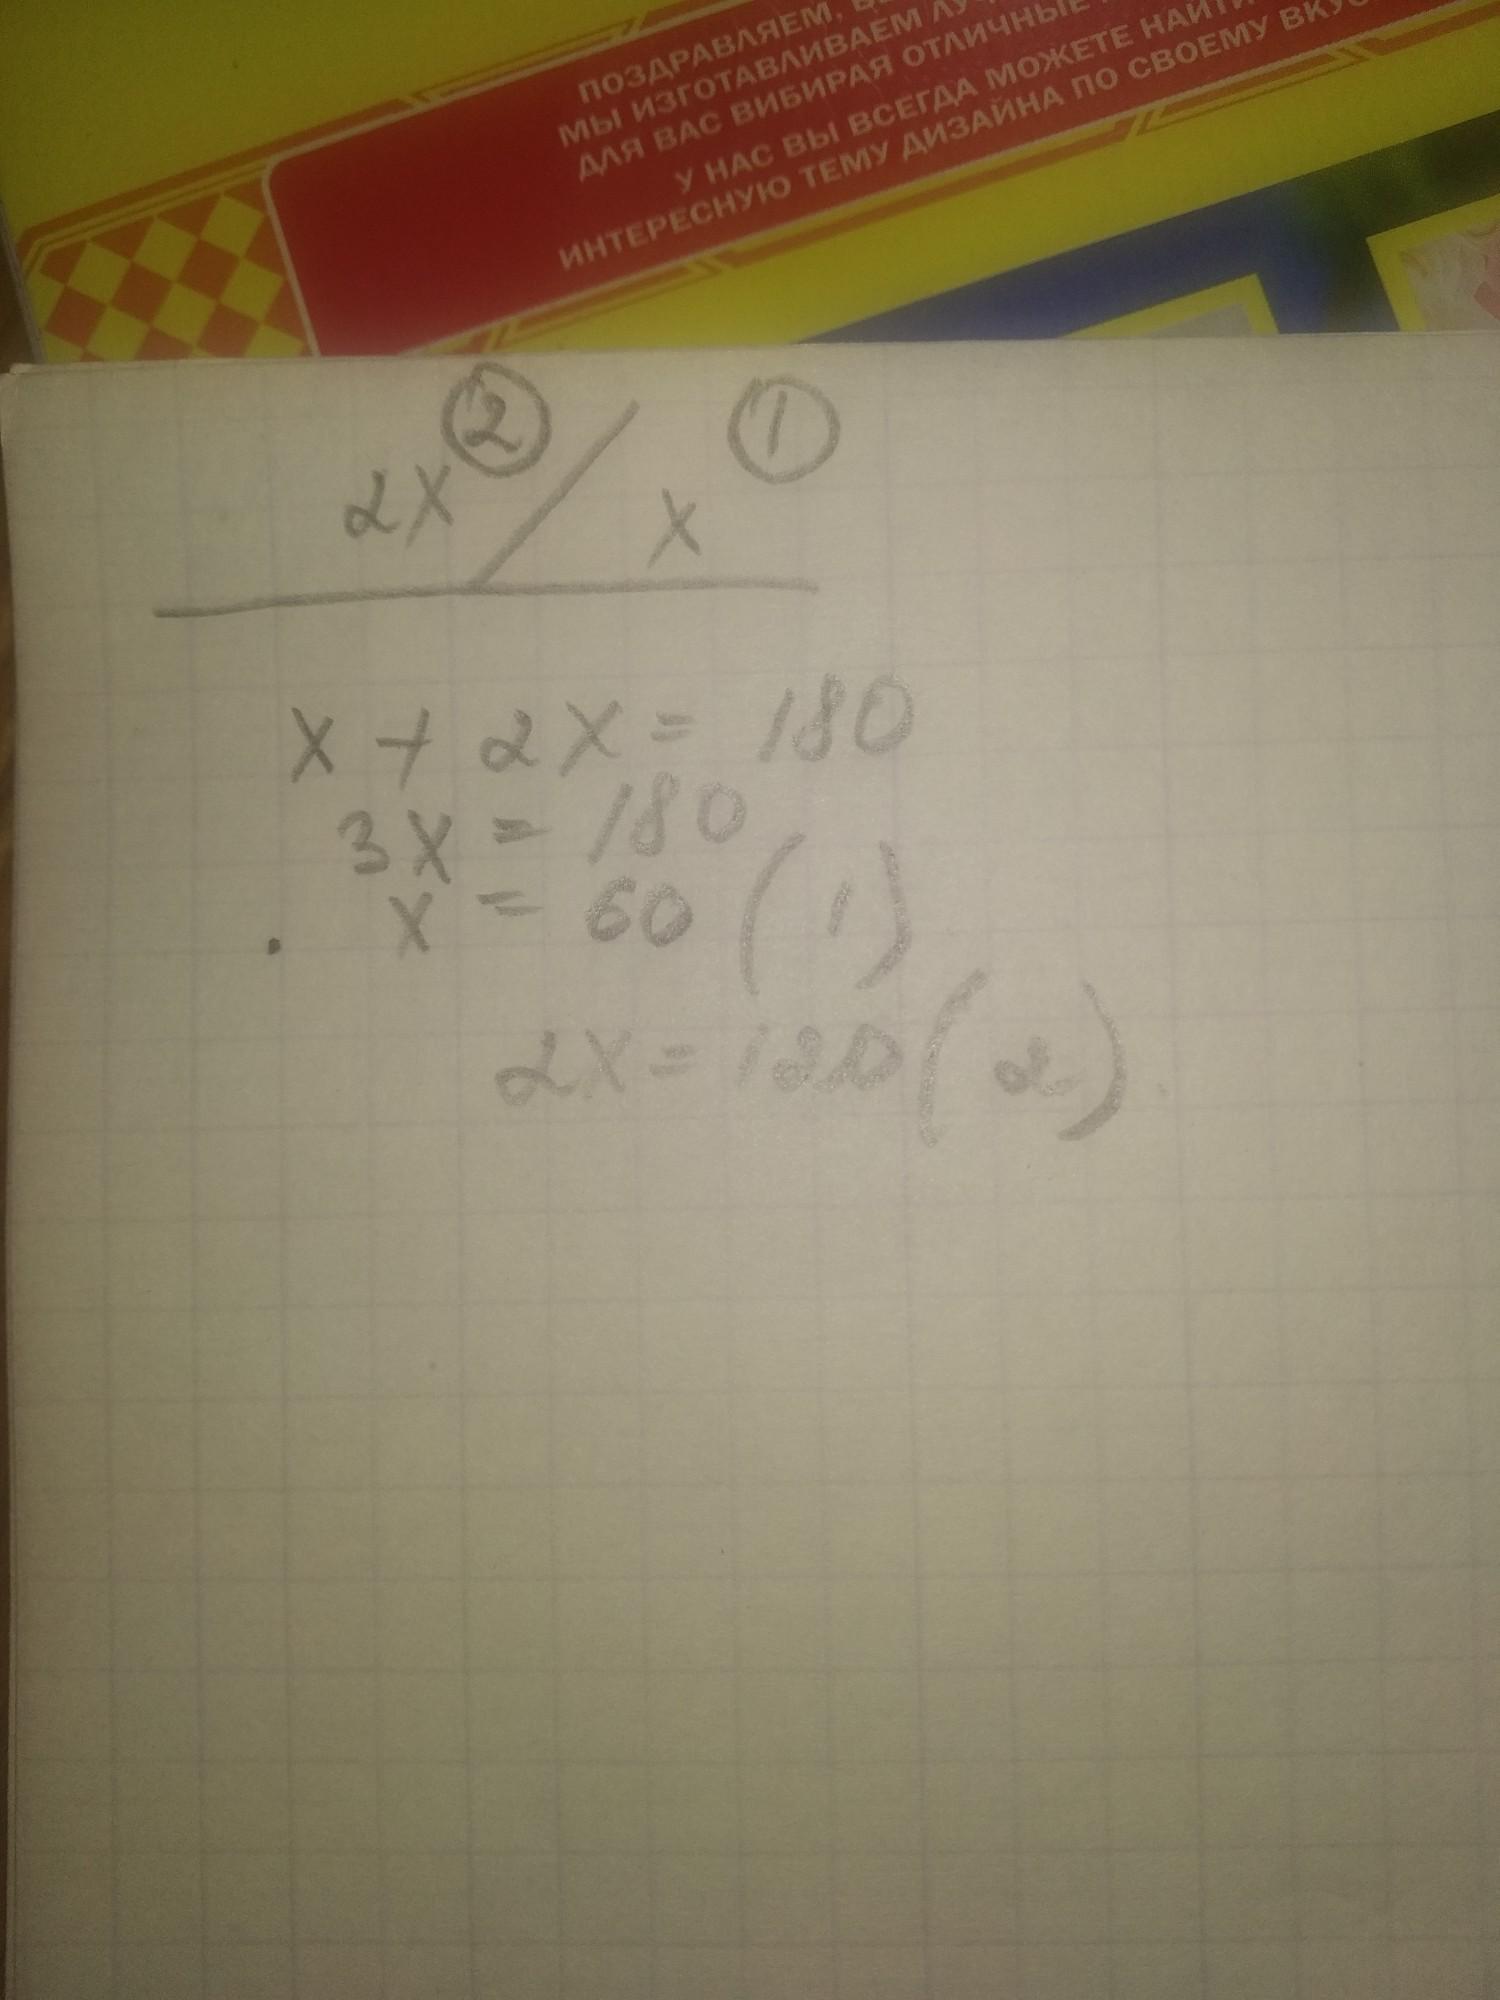 ПОЗДРАВЛЯЕМ,
МЫ ИЗГОТАВЛИВАЕМ
ДЛЯ ВАС ВИБИРАЯ ОТЛИЧНЫЕ
У НАС ВЫ ВСЕГДА МОЖЕТЕ НАЙТИ
ИНТЕРЕСНУЮ ТЕМУ ДИЗАЙНА ПО СВОЕМУ
2x ② / x ①
x + 2x = 180
3x = 180
x = 60 (1)
2x = 120 (2)